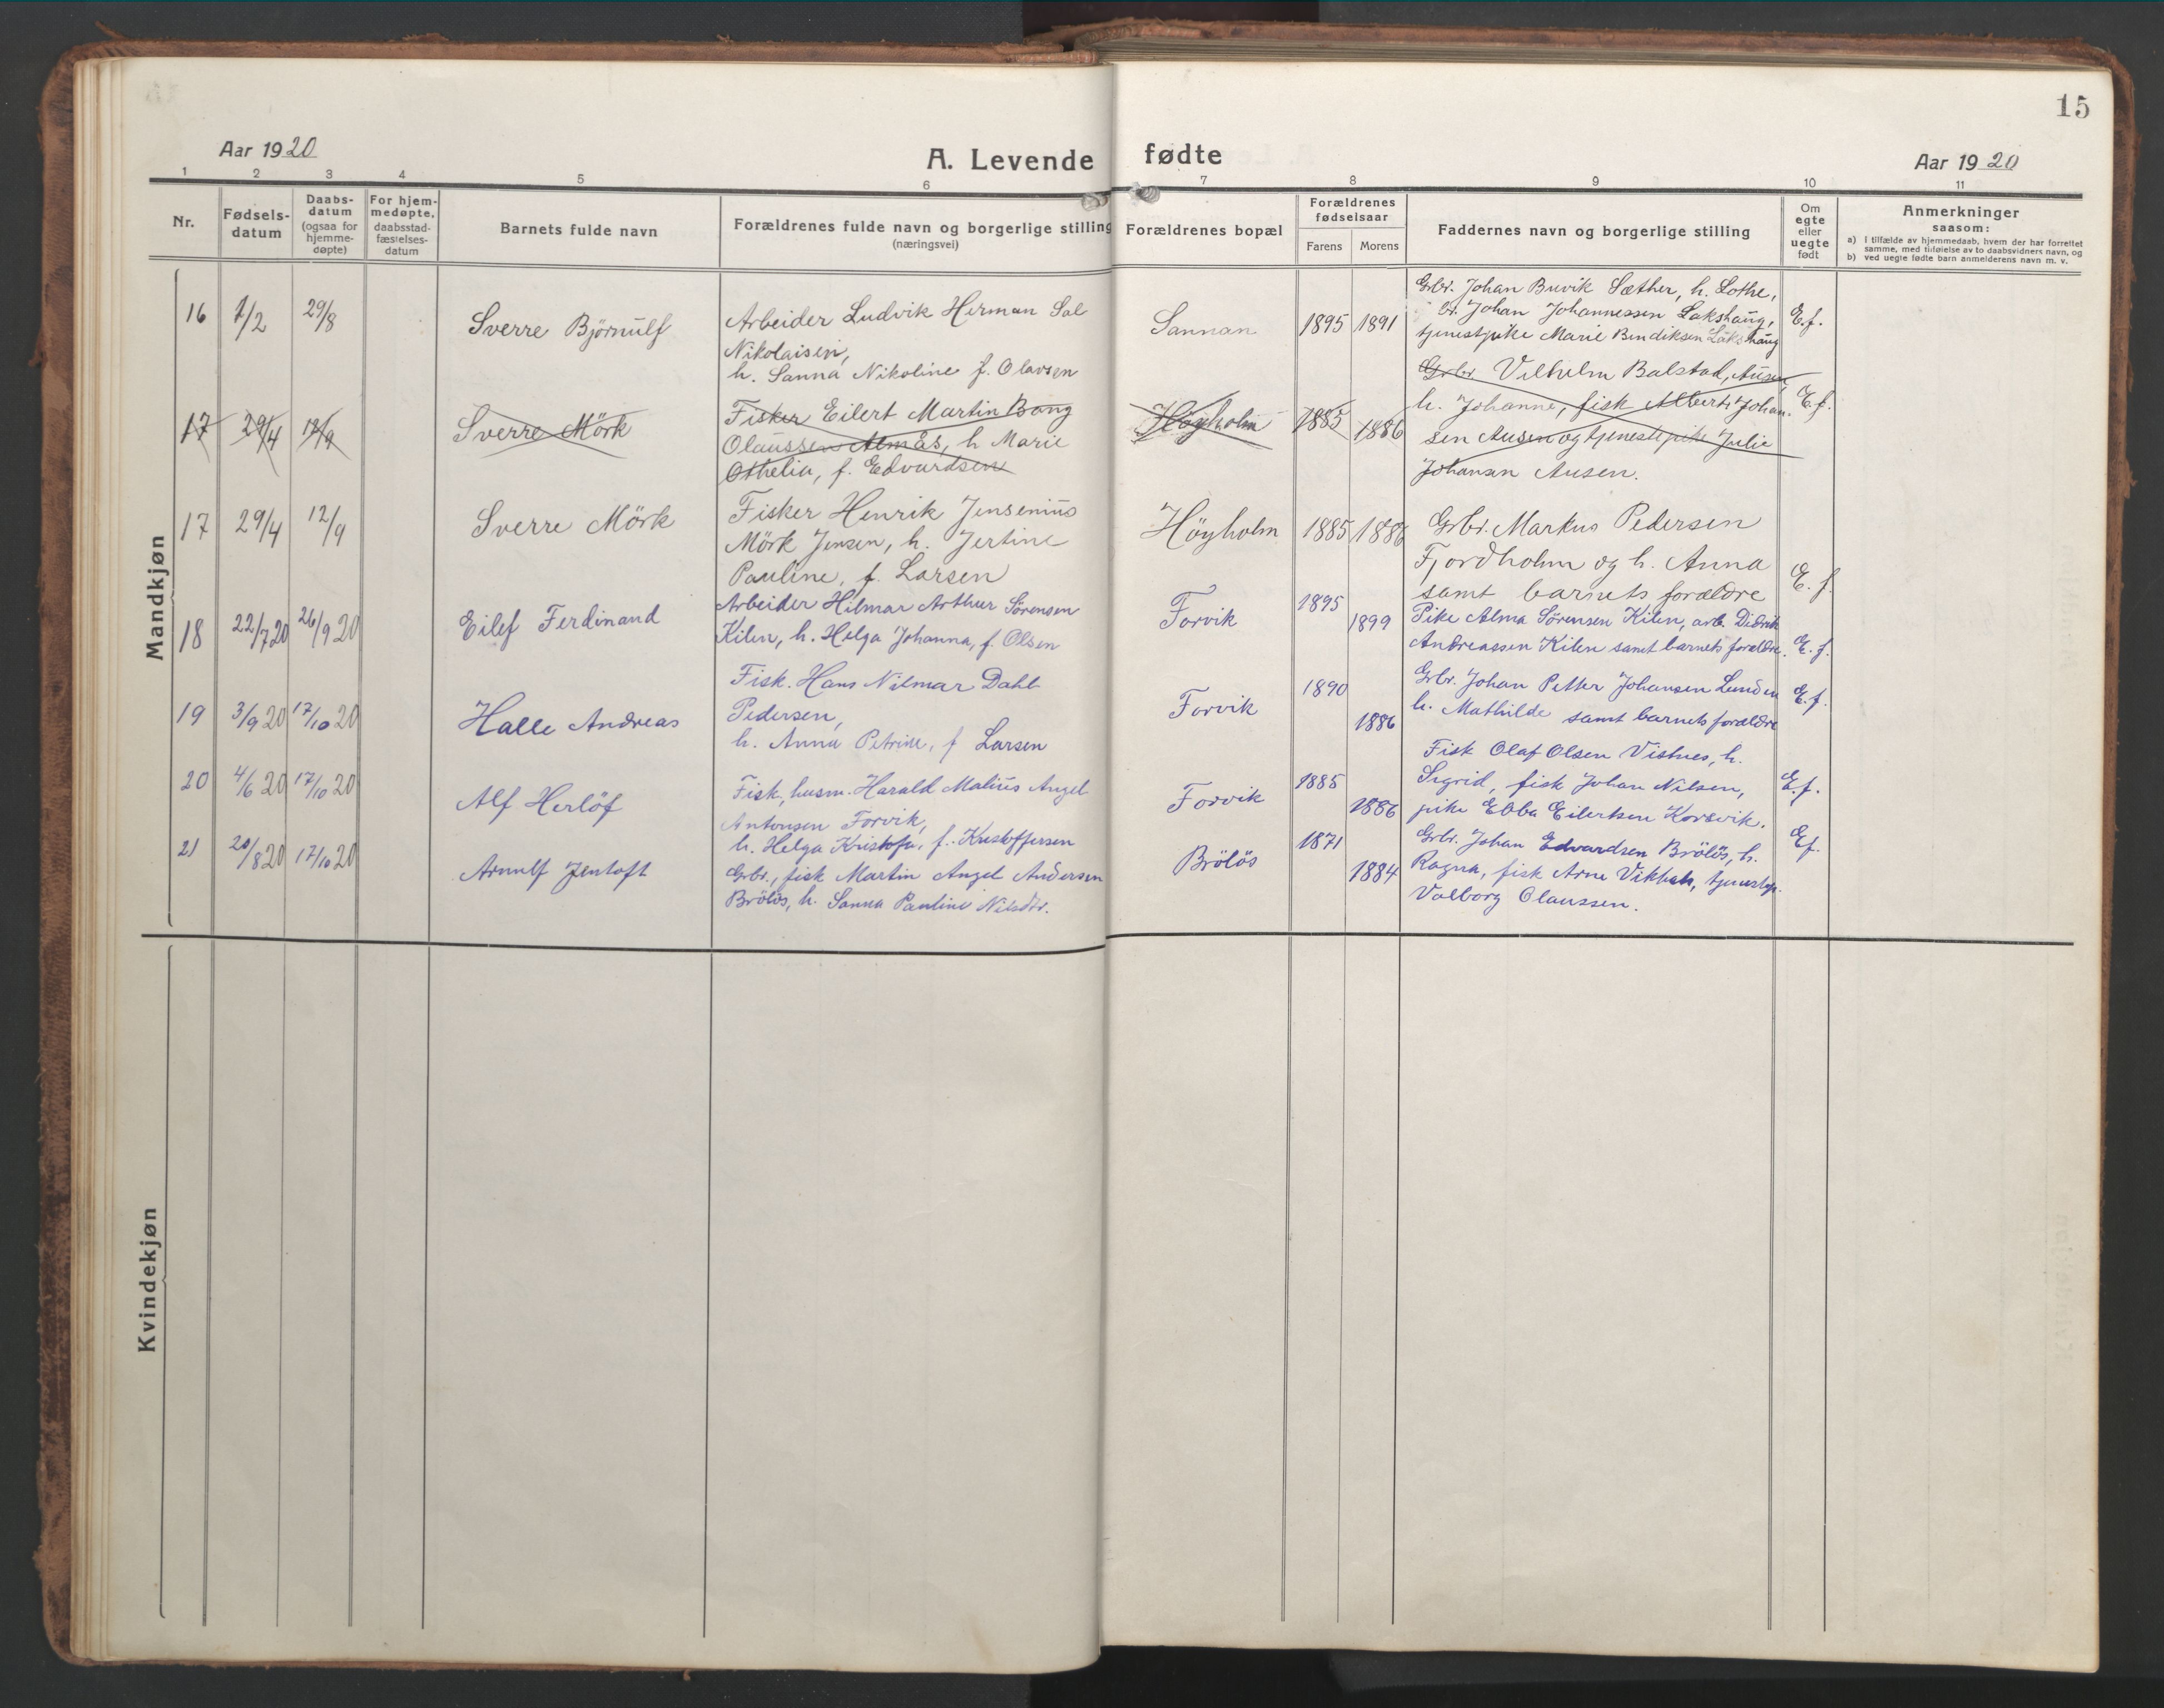 15
Aar 1920
A. Levende fødte
Aar 1920
1 2 3 4 5 6 7 8 9 10 11
Nr.
Fødsels-
datum
Daabs-
datum
(ogsaa for
hjemme-
døpte)
For hjem-
medøpte,
daabsstad-
fæstelses-
datum
Barnets fulde navn
Forældrenes fulde navn og borgerlige stilling
(næringsvei)
Forældrenes bopæl
Forældrenes
fødselsaar
Farens Morens
Faddernes navn og borgerlige stilling
Om
egte
eller
uegte
født
Anmerkninger
saasom:
a) I tilfælde av hjemmedaab, hvem der har forrettet
samme, med tilføielse av to daabsvidners navn, og
b) ved uegte fødte barn anmelderens navn m. v.
Mandkjøn
16 1/2 29/8
Sverre Björnulf
Arbeider Ludvik Herman Sal
Nikolaisen,
h. Sanna Nikoline f. Olavsen
Sannan
1895 1891
Grbr. Johan Buvik Sæther, h. Lothe,
br. Johan Johannessen Lakshaug,
tjenestpike Marie Bendiksen Lakshaug
E.f.
17 29/4 12/9
Sverre Mörk
Fisker Eilert Martin Bang
Olaussen Almås, h Marie
Othelia, f. Edvardsen
Höyholm
1885 1886
Grbr. Vilhelm Balstad, Ausen
h. Johanne, fisk Albert Johan-
sen Ausen og tjenestepike Julie
Johansen Ausen.
E.f.
17 29/4 12/9
Sverre Mörk
Fisker Henrik Jensenius
Mörk Jensen, h. Jertine
Pauline, f. Larsen
Höyholm
1885 1886
Grbr. Markus Pedersen
Fjordholm og h. Anna
samt barnets forældre
E. f.
18 22/7 20 26/9 20
Eilef Ferdinand
Arbeider Hilmar Arthur Sørensen
Kilen, h. Helga Johanna, f. Olsen
Forvik
1895 1899
Pike Alma Sørensen Kilen, arb. Didrik
Andreassen Kilen samt barnets forældre.
E. f.
19 3/9 20 17/10 20
Halle Andreas
Fisk. Hans Nilmar Dahl
Pedersen,
h. Anna Petrine, f Larsen
Forvik
1890 1886
Grbr. Johan Petter Johansen Lunden
h. Mathilde samt barnets forældre
E.f.
20 4/6 20 17/10 20
Alf Herlöf
Fisk, husm. Harald Malius Angel
Antonsen Forvik,
h. Helga Kristofa, f. Kristoffersen
Forvik
1885 1886
Fisk Olaf Olsen Vistnes, h.
Sigrid, fisk Johan Nilsen,
pike Ebba Eilertsen Korsvik.
E.f.
21 20/8 20 17/10 20
Arnulf Jentoft
Grbr., fisk Martin Angel Andersen
Brölös, h. Sanna Pauline Nilsdtr.
Brölös
1871 1884
Grbr. Johan Edvardsen Brölös, h.
Ragna, fisk Arne Vikbak, tjenestep.
Valborg Olaussen.
Ef.
Kvindekjøn